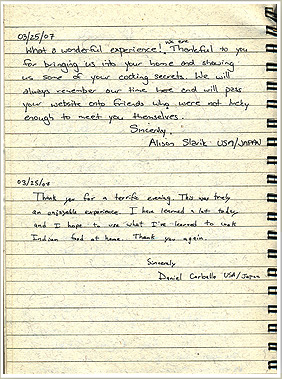 03/25/07
What a wonderful experience! We are Thankful to you
for bringing us into your home and showing
us some of your cooking secrets. We will
always remember our time here and will pass
your website onto friends who were not lucky
enough to meet you themselves.
Sincerely,
Alison Slavik - USA/JAPAN
03/25/07
Thank you for a terrific evening. This was truly
an enjoyable experience. I have learned a lot today
and I hope to use what I've learned to cook
Indian food at home. Thank you again.
Sincerely
Daniel USA/Japan